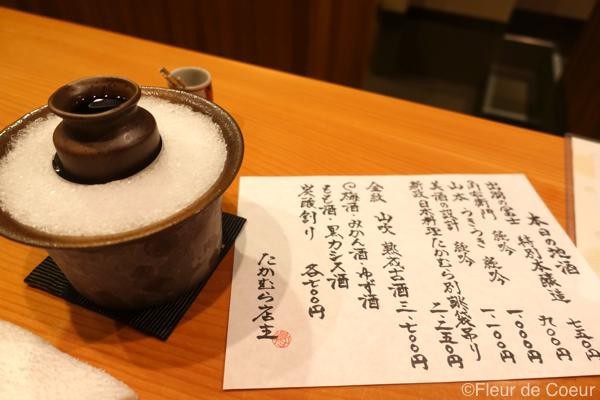 本日の地酒
特別本醸造 七五〇円
出羽の富士 純吟 九〇〇円
山本 うきうき 純吟 一、〇〇〇円
美酒の設計 純吟 一、一〇〇円
新政 日本料理たかむら別誂袋吊り 二、二五〇円
金紋 山吹 熟成古酒 二、七〇〇円
◎梅酒・みかん酒・ゆず酒
もも酒・黒カシス酒
炭酸割り 各七〇〇円
たかむら店主
©Fleur de Coeur